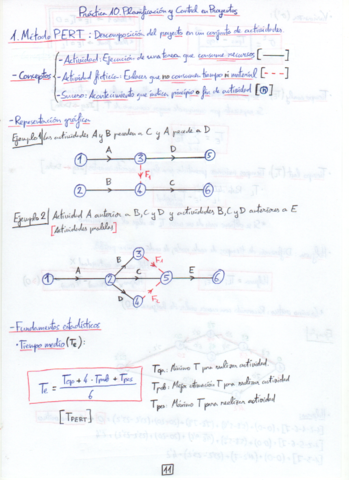 Práctica 10: Planificación y Control de Proyectos
1. Método PERT: Descomposición del proyecto en un conjunto de actividades
- Conceptos
- Actividad: Ejecución de una tarea que consume recursos [——]
- Actividad ficticia: Enlaces que no consume tiempo ni material [- - -]
- Suceso: Acontecimiento que indica principio o fin de actividad [(n)]
- Representación gráfica
Ejemplo 1 | Las actividades A y B preceden a C y A precede a D
1 A 3 D 5
F1
2 B 4 C 6
Ejemplo 2 | Actividad A anterior a B, C y D y actividades B, C y D anteriores a E
[Actividades paralelas]
3
B F1
1 A 2 C 5 E 6
D F2
4
- Fundamentos estadísticos
· Tiempo medio (Te):
Te = Top + 4 · Tprob + Tpes / 6
[TPERT]
Top: Mínimo T para realizar actividad
Tprob: Mejor estimación T para realizar actividad
Tpes: Máximo T para realizar actividad
11